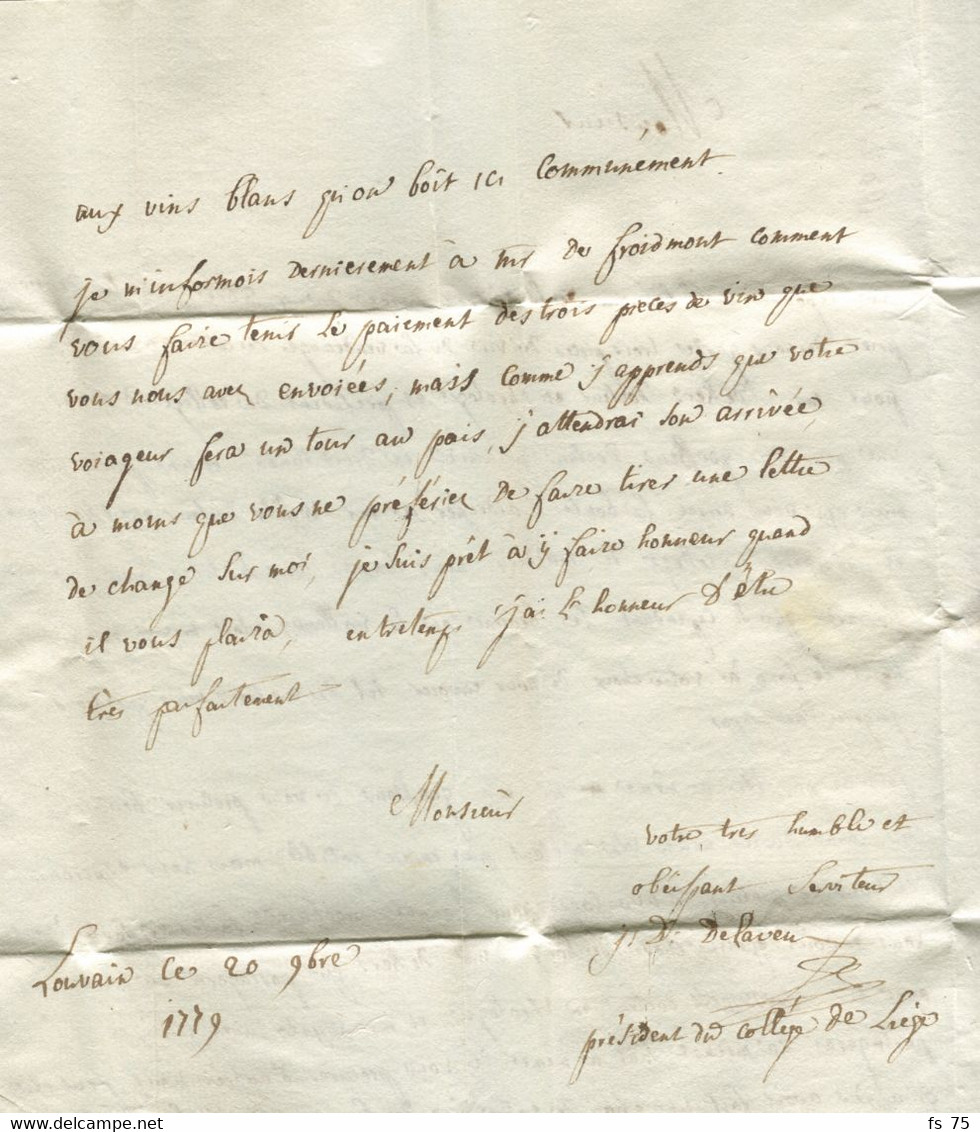 aux vins blans qu'on boit ici communément.
je m'informois dernierement à mr de froidmont comment
vous faire tenir le paiement des trois pieces de vin que
vous nous avez envoiées, mais comme j'apprends que votre
voiageur fera un tour au païs, j'attendrai son arrivée,
à moins que vous ne préfériez de faire tirer une lettre
de change sur moi, je suis prêt à y faire honneur quand
il vous plaira, entretemps j'ai l'honneur d'être
très parfaitement
Monsieur
votre très humble et
obéissant serviteur
Delaveu
président du collége de Liége
Louvain ce 20 9bre
1779
fs 75